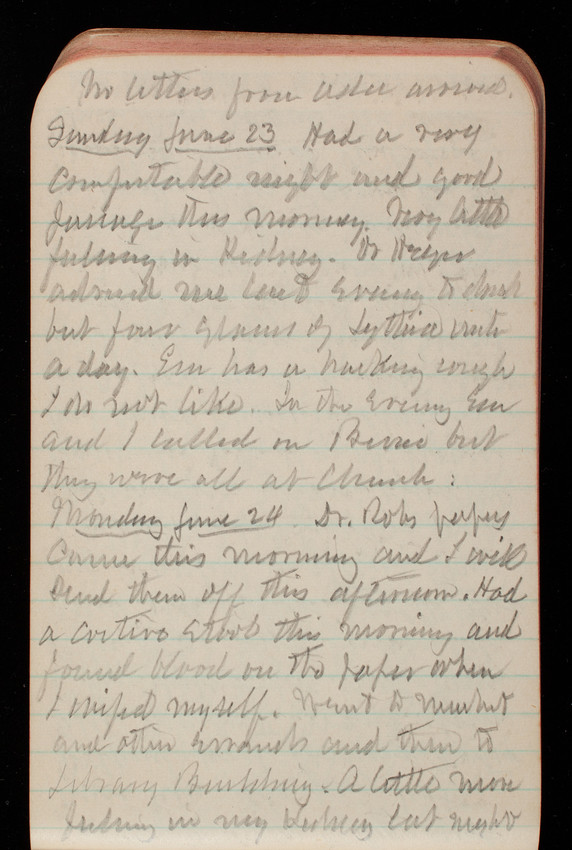 No letters from  arrived.
Sunday June 23 Had a very
comfortable night and good
passage this morning. Very little
feeling in Kidney. Dr
advised me last Evening to drink
but four glasses of Lythia water
a day. Em has a hacking cough
I do not like. In the Evening Em
and I called on  but
they were all at Church:
Monday June 24 Dr. Robs papers
Came this morning and I will
Send them off this afternoon. Had
a costive stool this morning and
found blood on the paper when
I wiped myself. Went to market
and other errands and then to
Library Building. A little more
feeling in my kidney last night